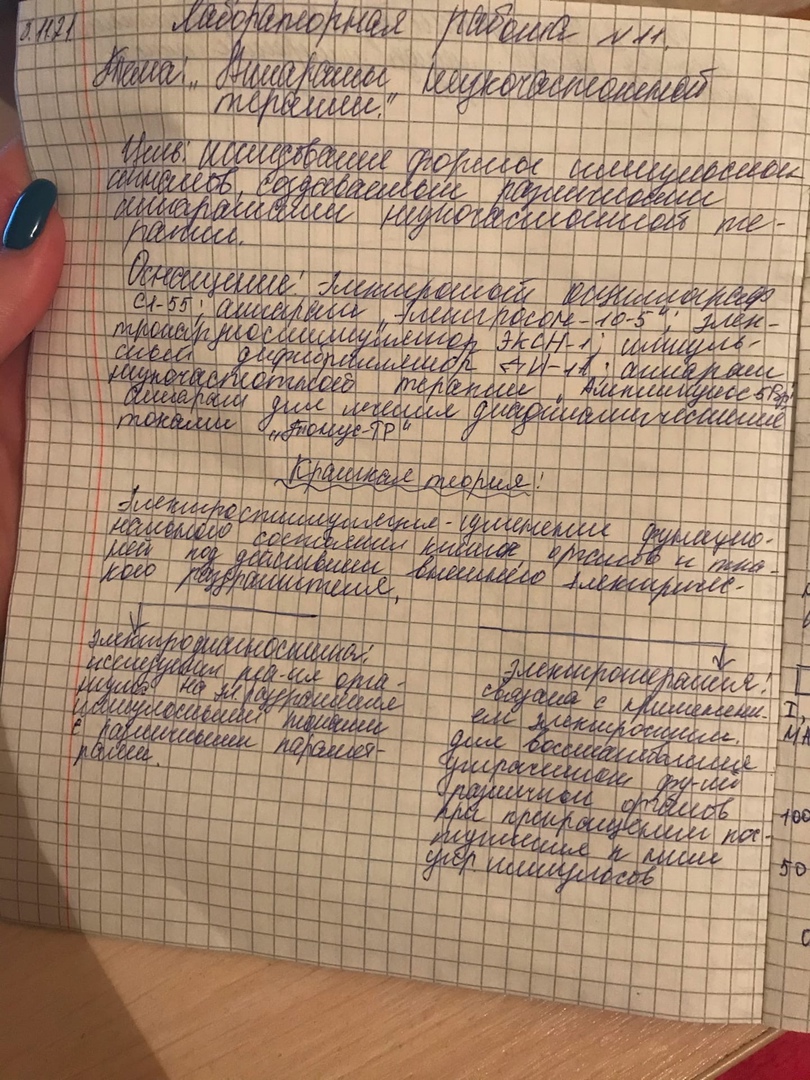 Лабораторная работа №11.
Тема: „Аппараты низкочастотной
терапии."
Цель: исследование формы импульсных
сигналов, создаваемых различными
аппаратами низкочастотной те-
рапии.
Оснащение: Электронный осциллограф
С1-55; аппараты „Электросон-10-5"; элек-
трокардиостимулятор ЭКСН-1; импуль-
сный дефибриллятор ДИ-1; аппарат
низкочастотной терапии „Амплипульс
аппарат для лечения диадинамическими
токами „Тонус-1Р"
Краткая теория:
Электростимуляция - изменение функцио-
нального состояния клеток органов и тка-
ней под действием внешнего электричес-
кого раздражителя.
Электродиагностика:
исследования реа-ия орга-
низма на эл. раздражение
импульсными токами
с различными парамет-
рами.
Электротерапия:
связана с применени-
ем электростим.
для восстановления
утраченной фу-ий
различной органов
при прекращении пос-
тупления к ним
нер импульсов
I,
МА
100
50
0